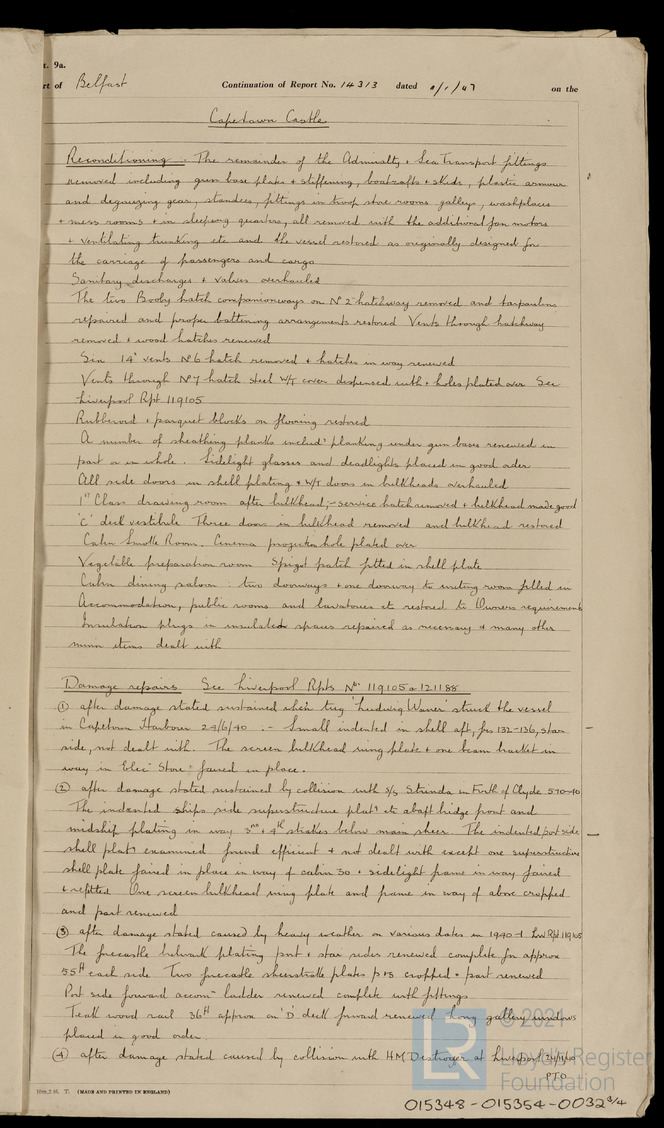 t. 9a.
rt of Belfast Continuation of Report No. 14313 dated 0/1/47 on the
Capetown Castle
Reconditioning. The remainder of the Admiralty & Sea Transport fittings
removed including gun base plates & stiffening, boatrafts & skids, plastic armour
and degaussing gear, standees, fittings in troop store rooms galleys, washplaces
& mess rooms & in sleeping quarters, all removed with the additional fan motors
& ventilating trunking etc and the vessel restored as originally designed for
the carriage of passengers and cargo
Sanitary discharges & valves overhauled
The two Booby hatch companionways on No 2 hatchway removed and tarpaulins
repaired and proper battening arrangements restored Vents through hatchway
removed & wood hatches renewed
Six 14" vents No 6 hatch removed & hatches in way renewed
Vents through No 7 hatch steel W/T cover dispensed with & holes plated over See
Liverpool Rpt 119105
Rubberoid & parquet blocks on flooring restored
A number of sheathing planks includg planking under gun bases renewed in
part or in whole. Sidelight glasses and deadlights placed in good order
All side doors in shell plating & W/T doors in bulkheads overhauled
1st Class drawing room after bulkhead;- service hatch removed & bulkhead made good
'C' deck vestibule Three doors in bulkhead removed and bulkhead restored
Cabin Smoke Room. Cinema projection hole plated over
Vegetable preparation room Spigot patch fitted in shell plate
Cabin dining saloon: two doorways & one doorway to writing room filled in
Accommodation, public rooms and lavatories etc restored to Owners requirements
Insulation plugs in insulated spaces repaired as necessary & many other
minor items dealt with
Damage repairs. See Liverpool Rpts Nos 119105 & 121188
(1) after damage stated sustained when tug 'Ludwig Wiener' struck the vessel
in Capetown Harbour 24/6/40 .- Small indented in shell aft, frs 132-136, star
side, not dealt with. The screen bulkhead wing plate & one beam bracket in
way in Elec Store faired in place.
(2) after damage stated sustained by collision with S/S Strinda in Firth of Clyde 5-10-40
The indented ships side superstructure platg etc abaft bridge front and
midship plating in way 3rd & 4th strakes below main sheer. The indented port side
shell platg examined found efficient & not dealt with except one superstructure
shell plate faired in place in way of cabin 30 & sidelight frame in way faired
& refitted One screen bulkhead wing plate and frame in way of above cropped
and part renewed
(3) after damage stated caused by heavy weather on various dates in 1940-1 Liv. Rpt 119105
The forecastle bulwark plating port & star sides renewed complete for approx
55ft each side Two forecastle sheerstrake plates P&S cropped & part renewed
Port side forward accom ladder renewed complete with fittings
Teak wood rail 36ft approx on 'D' deck forward renewed Long gallery windows
placed in good order
(4) after damage stated caused by collision with HM Destroyer at Liverpool
PTO
10m,2.46. T. (MADE AND PRINTED IN ENGLAND)
© 2021
Lloyd's Register
Foundation
LR
015348-015354-0032 3/4